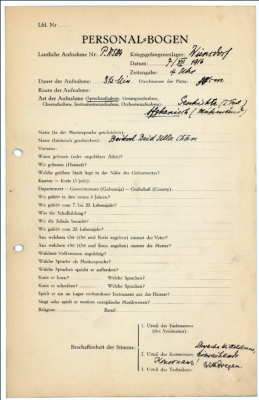 Lfd. Nr.
PERSONAL-BOGEN
Lautliche Aufnahme Nr.: P.K. 384 Kriegsgefangenenlager: Wünsdorf
Datum: 1916
Zeitangabe: 4 Uhr
Dauer der Aufnahme: 3½ Min Durchmesser der Platte:
Raum der Aufnahme:
Art der Aufnahme (Sprechaufnahme, Gesangsaufnahme,
Choraufnahme, Instrumentenaufnahme, Orchesteraufnahme):
Name (in der Muttersprache geschrieben):
Name (lateinisch geschrieben):
Vorname:
Wann geboren (oder ungefähres Alter)?
Wo geboren (Heimat)?
Welche größere Stadt liegt in der Nähe des Geburtsortes?
Kanton — Kreis (Ujedz):
Department — Gouvernement (Gubernija) — Grafschaft (County):
Wo gelebt in den ersten 6 Jahren?
Wo gelebt vom 7. bis 20. Lebensjahr?
Was für Schulbildung?
Wo die Schule besucht?
Wo gelebt vom 20. Lebensjahr?
Aus welchem Ort (Ort und Kreis angeben) stammt der Vater?
Aus welchem Ort (Ort und Kreis angeben) stammt die Mutter?
Welchem Volksstamm angehörig?
Welche Sprache als Muttersprache?
Welche Sprachen spricht er außerdem?
Kann er lesen? Welche Sprachen?
Kann er schreiben? Welche Sprachen?
Spielt er ein im Lager vorhandenes Instrument aus der Heimat?
Singt oder spielt er modern europäische Musikweisen?
Religion: Beruf:
Beschaffenheit der Stimme:
1. Urteil des Fachmannes
(des Assistenten):
2. Urteil des Kommissars:
3. Urteil des Technikers: